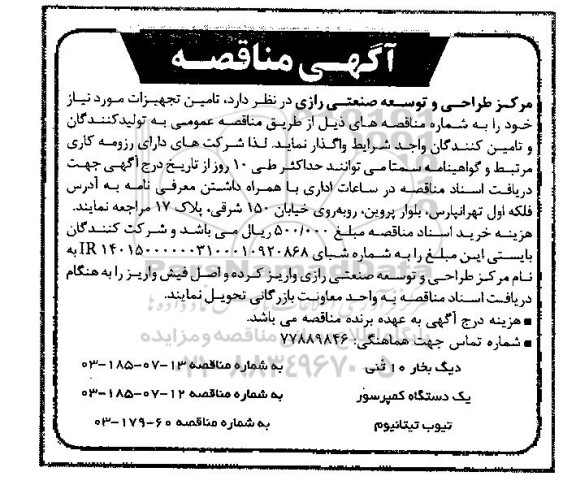 آگهی مناقصه
مرکز طراحی و توسعه صنعتی رازی در نظر دارد، تامین تجهیزات مورد نیاز
خود را به شماره مناقصه های ذیل از طریق مناقصه عمومی به تولیدکنندگان
و تامین کنندگان واجد شرایط واگذار نماید. لذا شرکت های دارای رزومه کاری
مرتبط و گواهینامه سمتا می توانند حداکثر طی ۱۰ روز از تاریخ درج آگهی جهت
دریافت اسناد مناقصه در ساعات اداری با همراه داشتن معرفی نامه به آدرس
فلکه اول تهرانپارس، بلوار پروین، روبه‌روی خیابان ۱۵۰ شرقی، پلاک ۱۷ مراجعه نمایند.
هزینه خرید اسناد مناقصه مبلغ ۵۰۰/۰۰۰ ریال می باشد و شرکت کنندگان
بایستی این مبلغ را به شماره شبای IR ۱۴۰۱۵۰۰۰۰۰۰۳۱۰۰۰۱۰۹۲۰۸۶۸ به
نام مرکز طراحی و توسعه صنعتی رازی واریز کرده و اصل فیش واریز را به هنگام
دریافت اسناد مناقصه به واحد معاونت بازرگانی تحویل نمایند.
■ هزینه درج آگهی به عهده برنده مناقصه می باشد.
■ شماره تماس جهت هماهنگی: ۷۷۸۸۹۸۴۶
دیگ بخار ۱۰ تُنی به شماره مناقصه ۱۳-۰۷-۱۸۵-۰۳
یک دستگاه کمپرسور به شماره مناقصه ۱۲-۰۷-۱۸۵-۰۳
تیوب تیتانیوم به شماره مناقصه ۶۰-۱۷۹-۰۳